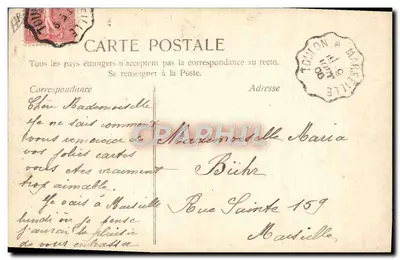 CARTE POSTALE
Tous les pays étrangers n'acceptent pas la correspondance au recto.
Se renseigner à la Poste.
Correspondance
Adresse
TOULON A MARSEILLE
Chère Mademoiselle
Je ne sais comment
vous remercier de
vos jolies cartes
vous êtes vraiment
trop aimable.
Je vais à Marseille
lundi où je pense
j'aurai le plaisir
de vous embrasser
Mademoiselle Maria
Bühr
Rue Sainte 159
Marseille
CPAPHIL